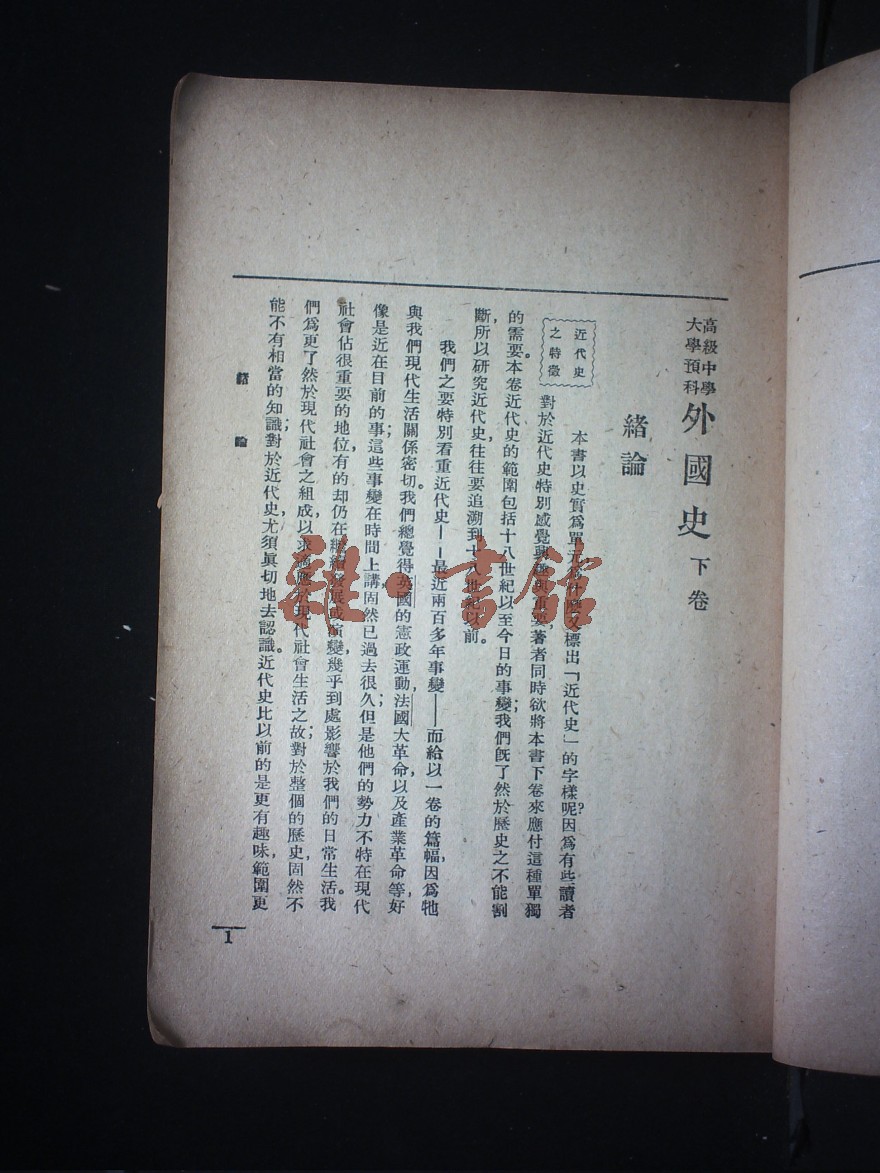 高級中學
大學預科
外國史 下卷
緒論
近代史
之特徵
本書以史實為單元為什麼又標出「近代史」的字樣呢?因為有些讀者
對於近代史特別感覺興趣與重要,著者同時欲將本書下卷來應付這種單獨
的需要。本卷近代史的範圍包括十八世紀以至今日的事變;我們既了然於歷史之不能割
斷,所以研究近代史,往往要追溯到十八世紀以前。
我們之要特別看重近代史——最近兩百多年事變——而給以一卷的篇幅,因為牠
與我們現代生活關係密切。我們總覺得英國的憲政運動,法國大革命,以及產業革命等,好
像是近在目前的事;這些事變在時間上講,固然已過去很久;但是他們的勢力不特在現代
社會佔很重要的地位,有的却仍在繼續發展或演變,幾乎到處影響於我們的日常生活。我
們為更了然於現代社會之組成,以求適應於現代社會生活之故;對於整個的歷史,固然不
能不有相當的知識;對於近代史,尤須眞切地去認識。近代史比以前的是更有趣味,範圍更
緒論
1
雜·書館